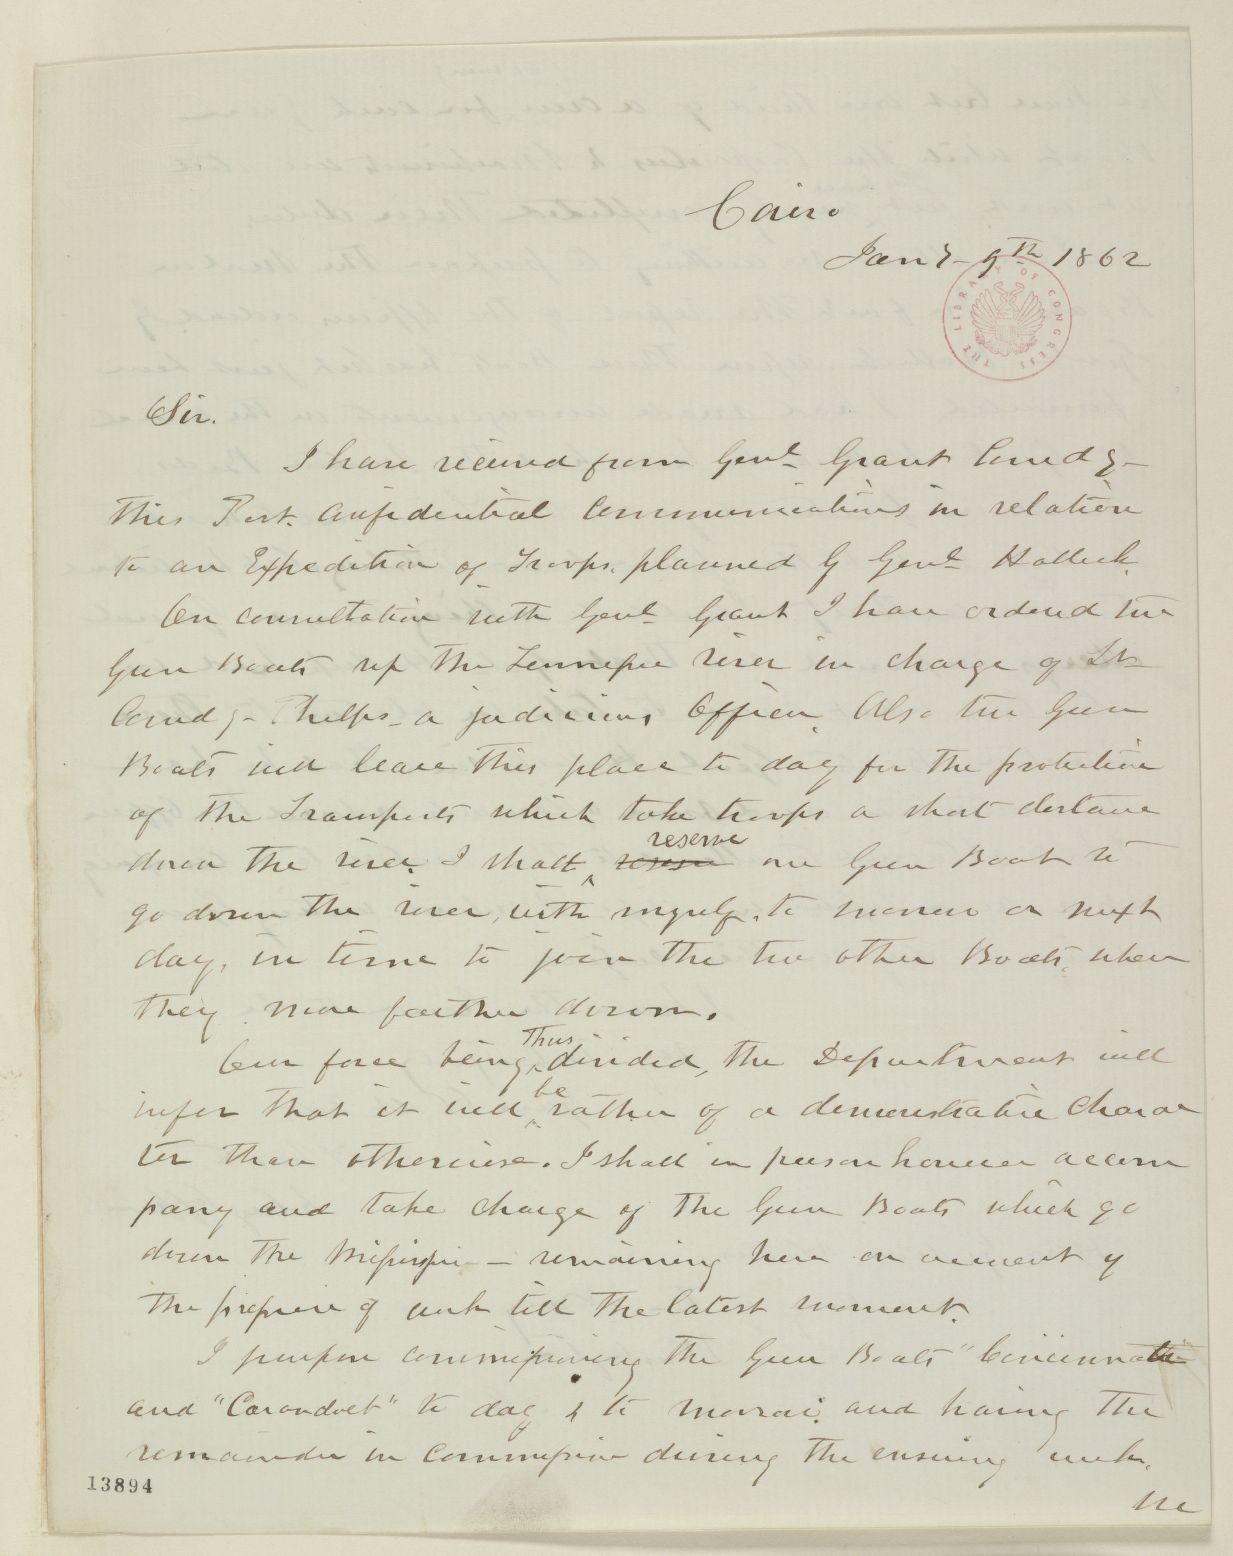 Cairo
Jany- 9th 1862
THE LIBRARY OF CONGRESS
Sir.
I have received from Genl Grant Comdg-
this Post. Confidential Communications in relation
to an Expedition of Troops, planned by Genl Halleck.
On consultation with Genl Grant I have ordered two
Gun Boats up the Tennessee river in charge of Lt
Comdg- Phelps - a judicious Officer. Also two Gun
Boats will leave this place to day for the protection
of the Transports which take troops a short distance
down the river. I shall reserve one Gun Boat to
go down the river, with myself, to morrow or next
day, in time to join the two other Boats, when
they move farther down.
Our force being thus divided, the Department will
infer that it will be rather of a demonstrative charac
ter than otherwise. I shall in person however accom
pany and take charge of the Gun Boats which go
down the Mississippi - remaining here on account of
the pressure of work till the latest moment.
I purpose commissioning the Gun Boats "Cincinnati
and "Carondolet" to day & to morrow. and having the
remainder in commission during the ensuing week.
We
13894